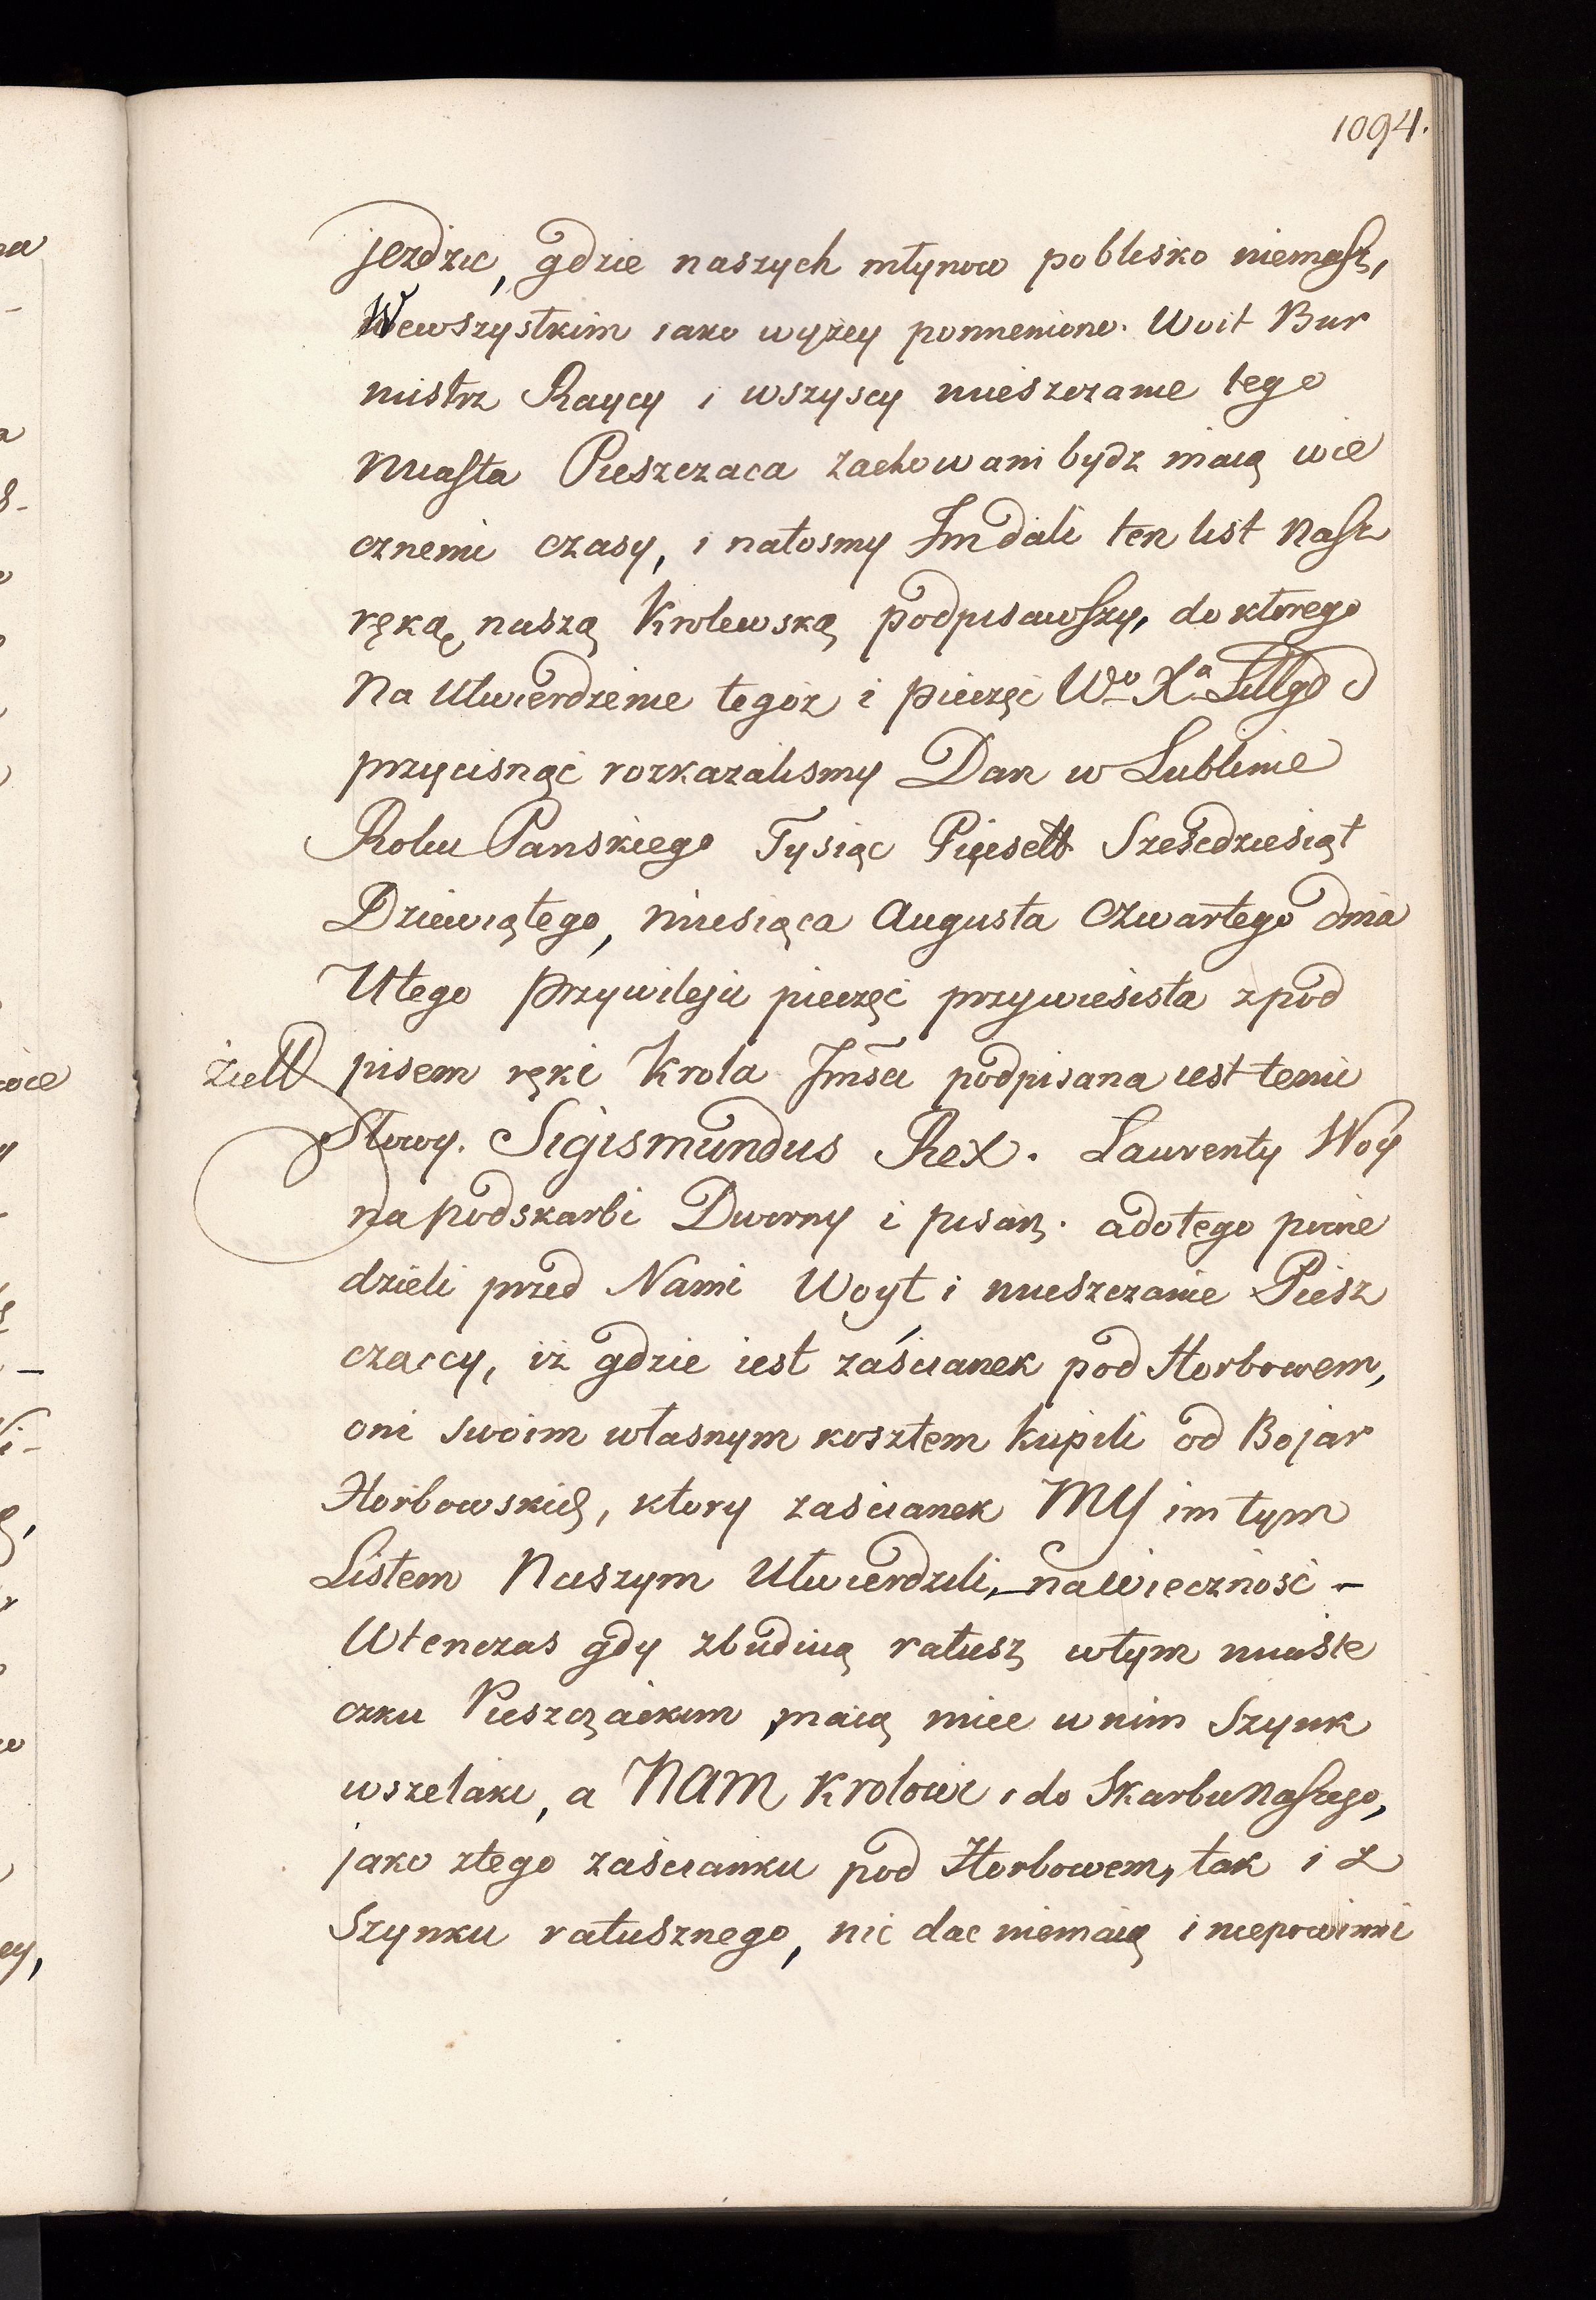 1094.
jezdzic, gdzie naszych młynow poblisko niemasz,
Wewszystkim iako wyżey pomienione. Woit Bur
mistrz Raycy i wszyscy mieszczanie tego
miasta Pieszczaca zachowani bydz maią wie
cznemi czasy, i natosmy Im dali ten list Nasz
ręką naszą Krolewską podpisawszy, do ktorego
Na Utwierdzenie tegoż i pieczęć Wo Xa Littgo
przycisnąć rozkazalismy Dan w Lublinie
Roku Panskiego Tysiąc Pięcsett Szescdziesiąt
Dziewiątego, miesiąca Augusta Czwartego dnia
Utego Przywileju pieczęć przywiesista z pod
pisem ręki Krola Jmsci podpisana iest temi
słowy. Sigismundus Rex. Laurenty Woy
na podskarbi Dworny i pisarz. adotego powie
dzieli przed Nami Woyt i mieszczanie Piesz
czaccy, iż gdzie iest zaścianek pod Horbowem,
oni swoim własnym kosztem kupili od Bojar
Horbowskich, ktory zascianek MY im tym
Listem Naszym Utwierdzili, na wieczność –
Wtenczas gdy zbuduią ratusz wtym miaste
czku Pieszczackim maią miec wnim Szynk
wszelaki, a NAM Krolowi i do Skarbu Naszego,
jako ztego zaścianku pod Horbowem, tak i z
Szynku ratusznego, nic dac niemaią i niepowinni